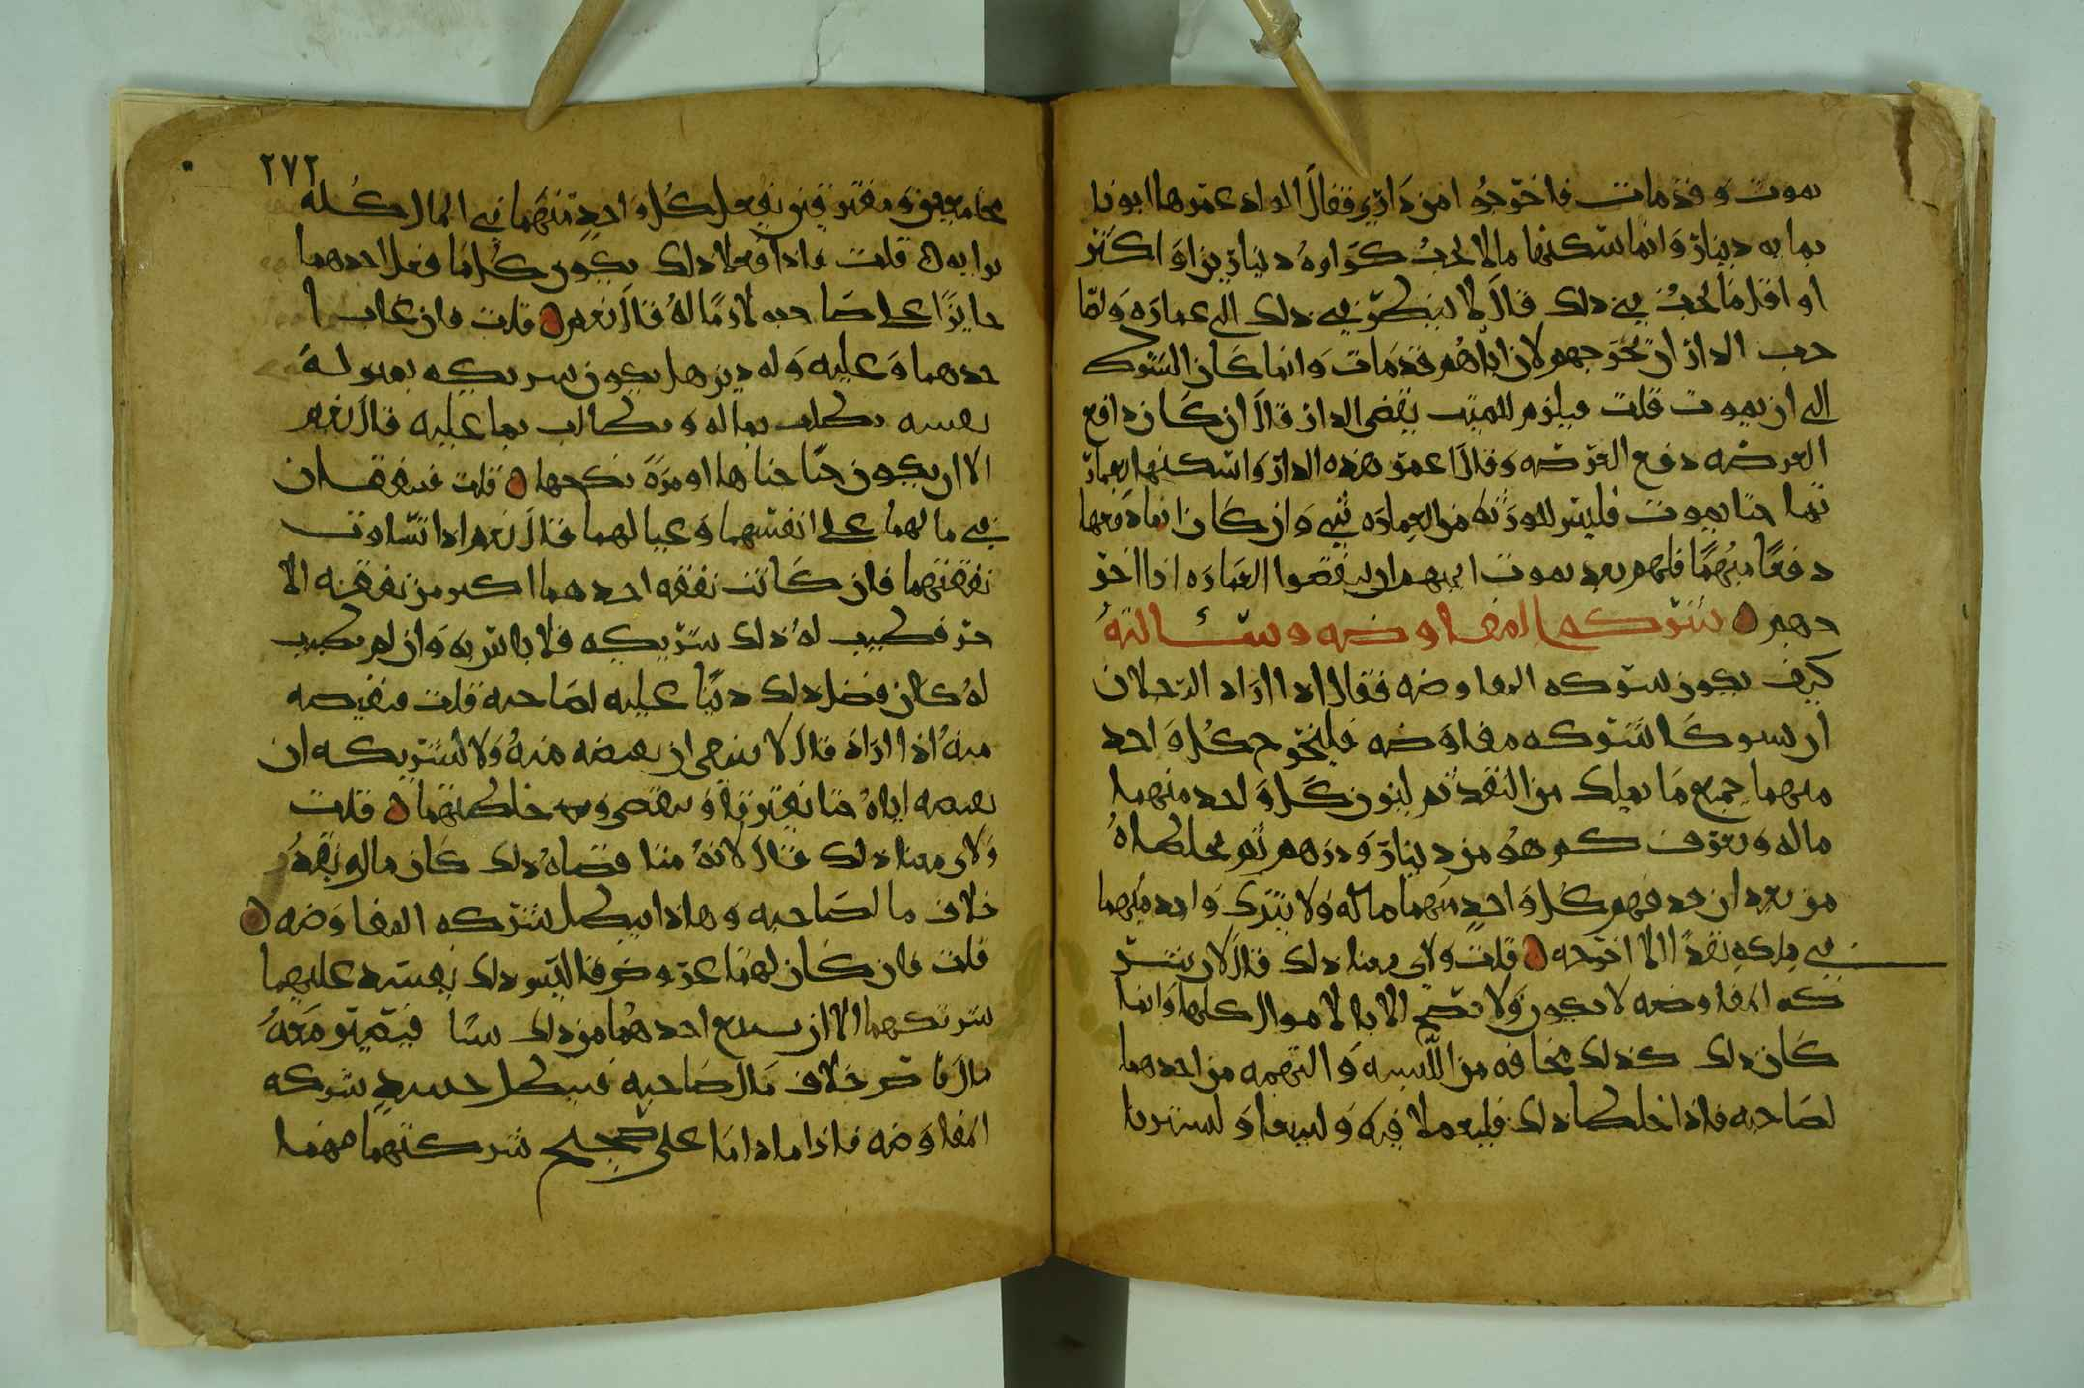 يموت وقد مات فاخرجوا من داري فقال الاولاد عمرها ابونا
بمايه دينار وانما سكنها ما لا يجب كراوه دينارين او اكثر
او اقل ما يجب في ذلك قال لا ينظر في ذلك الى عماره ولصا
حب الدار ان يخرجهم لان اباهم قد مات وانما كان الشرط
الى ان يموت قلت فيلزم للميت بعض الدار قال ان كان دافع
العرصه دفع العرصه وقال اعمر هذه الدار واسكنها بعمار
تها حتا يموت فليس للورثه من العماره شي وان كان انما دفعها
دفعا مبهما فلهم بعد موت ابيهم ان ينقضوا العماره اذا اخر
جهم شركه المفاوضه وسئالته
كيف يكون شركه المفاوضه فقال اذا اراد الرجلان
ان يشتركا شركه مفاوضه فليخرج كل واحد
منهما جميع ما يملك من النقد ثم ليزن كل واحد منهما
ماله ويعرف كم هو من دينار ودرهم ثم يخلطاه
من بعد ان قد فهم كل واحد منهما ماله ولا يترك واحد منهما
في ملكه نقدا الا اخرجه قلت ولاي معنا ذلك قال لان شر
كه المفاوضه لا يكون ولا تصح الا بالاموال كلها وانما
كان ذلك كذلك مخافه من اللبسه والتهمه من احدهما
لصاحبه فاذا خلطا ذلك فليعملا فيه وليبيعا وليشتريا
٢٧٢
مجامعين ومفترقين يفعل كل واحد منهما في المال كله
برايه قلت فاذا فعلا ذلك يكون كل ما فعل احدهما
جايزا على صاحبه لازما له قال نعم قلت فان غاب ا
حدهما وعليه وله دين هل يكون شريكه بمنزلة
نفسه يطلب بماله ويطالب بما عليه قال نعم
الا ان يكون حتا جناها او مرة نكحها قلت فينفقان
في مالهما على انفسهما وعيالهما قال نعم اذا تساوت
نفقتهما فان كانت نفقه احدهما اكثر من نفقه الا
خر فطيب له ذلك شريكه فلا باس به وان لم يطيب
له كان فضل ذلك دينا عليه لصاحبه قلت فيقبضه
منه اذا اراد قال لا ينبغي ان يقبضه منه ولا لشريكه ان
يقبضه اياه حتا يفترقا وينقضي خلطتهما قلت
ولاي معنا ذلك قال لانه متا قضاه ذلك كان ماله نقد
خلاف ما لصاحبه وهاذا يبطل شركه المفاوضه
قلت فان كان لهما عروض فاليس ذلك يفسد عليهما
شركتهما الا ان يبيع احدهما من ذلك شيا فيصير معه
مال ناض خلاف مال صاحبه فيبطل حينيذ شركه
المفاوضه فاذا ما داما على صحيح شركتهما فهما